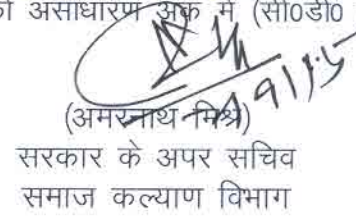 असाधारण अंक में (सी०डी०
(अमरनाथ मिश्र)
सरकार के अपर सचिव
समाज कल्याण विभाग